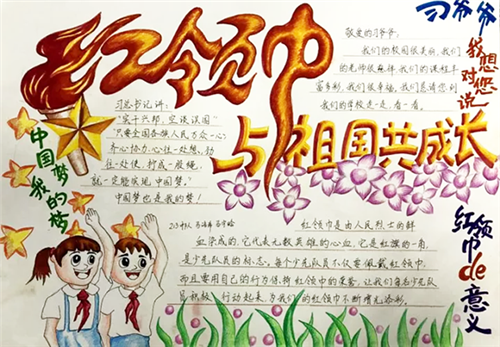 红领巾
与祖国共成长
习爷爷
我想对您说
敬爱的习爷爷,
我们的校园很美丽,我们
的老师很慈祥,我们的课程丰
富多彩,我们很幸福,我们真请您到
我们的学校走一走,看一看。
习总书记讲:
"实干兴邦,空谈误国"
"只要全国各族人民万众一心,
齐心协力心往一处想,劲
往一处使,拧成一股绳,
就一定能实现中国梦。"
中国梦也是我的梦!
中国梦
我的梦
红领巾是由人民烈士的鲜
血染成的,它代表无数英雄的心血,它是红旗的一角,
是少先队员的标志。每个少先队员不仅要佩戴红领巾,
而且要用自己的行为保持红领巾的荣誉,让我们每名少先队
员积极行动起来,为我们的红领巾不断增光添彩。
红领巾de意义